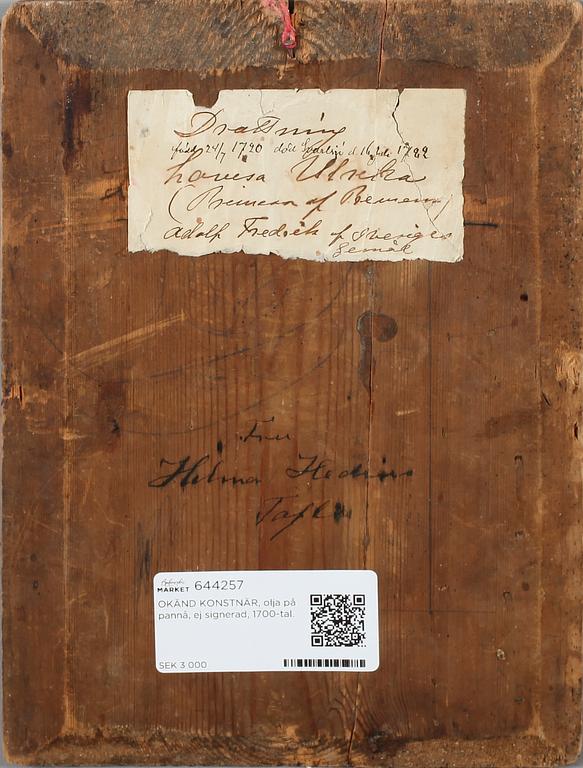 Drottning
född 24/7 1720 död Svartsjö d 16 juli 1782
Lovisa Ulrika
(Prinsessa af Preussen)
Adolf Fredrik af Sveriges
Gemål
Fru
Hilma Hedins
Tafla
MARKET 644257
OKÄND KONSTNÄR, olja på
pannå, ej signerad, 1700-tal.
SEK 3 000